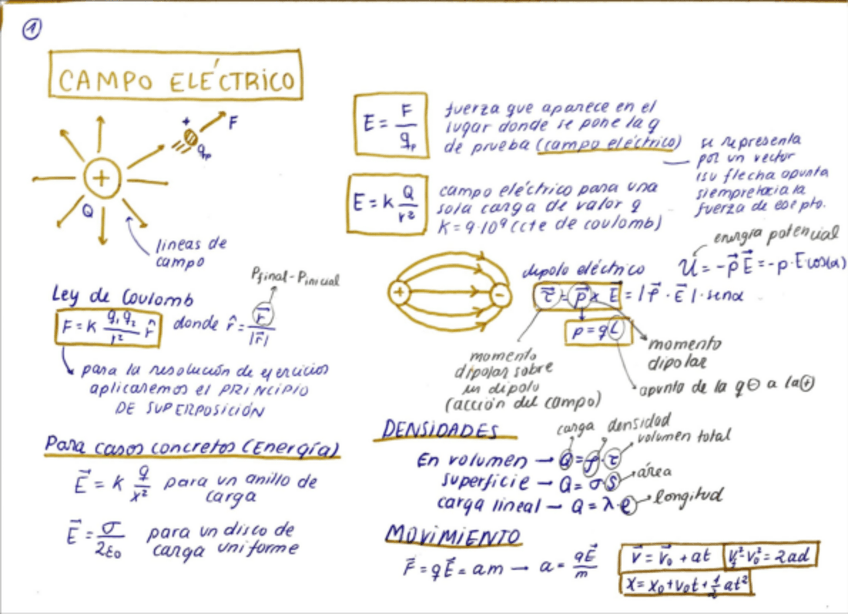 1
CAMPO ELÉCTRICO
+ F
q_p
+
Q
lineas de
campo
E = F/q_p
fuerza que aparece en el
lugar donde se pone la q
de prueba (campo eléctrico)
se representa
por un vector
(su flecha apunta
siempre hacia la
fuerza de ese pto.
E = K Q/r²
campo eléctrico para una
sola carga de valor q
K = 9·10⁹ (cte de coulomb)
Ley de Coulomb
F = K q₁q₂/r² r̂ donde r̂ = r⃗/|r⃗|
Pfinal - Pinicial
para la resolución de ejercicios
aplicaremos el PRINCIPIO
DE SUPERPOSICIÓN
+ −
dipolo eléctrico
energía potencial
U = -p⃗ E⃗ = -p·E cos(α)
τ⃗ = p⃗ x E⃗ = |p⃗·E⃗|·senα
p = qL
momento
dipolar sobre
un dipolo
(acción del campo)
momento
dipolar
apunta de la q⊖ a la⊕
Para casos concretos (Energía)
E⃗ = K q/x² para un anillo de
carga
E⃗ = σ/2ε₀ para un disco de
carga uniforme
DENSIDADES
carga densidad
volumen total
En volumen → Q = ρ·τ
superficie → Q = σ·S área
carga lineal → Q = λ·l longitud
MOVIMIENTO
F⃗ = qE⃗ = am → a = qE⃗/m
v⃗ = v⃗₀ + at
v_f² - v₀² = 2ad
x = x₀ + v₀t + ½at²